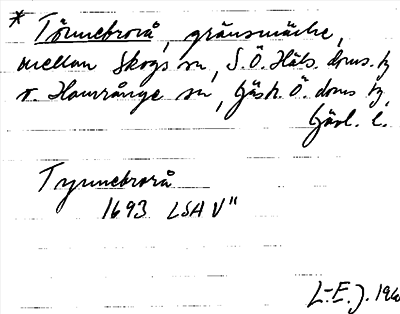 * Törnebrorå, gränsmärke,
mellan Skogs sn, S.Ö. Häls. doms. tg
o. Hamrånge sn, Gästr. Ö. doms tg,
Gävl. l.
Tyrnebrorå
1693 LSA V"
L-E. J. 196